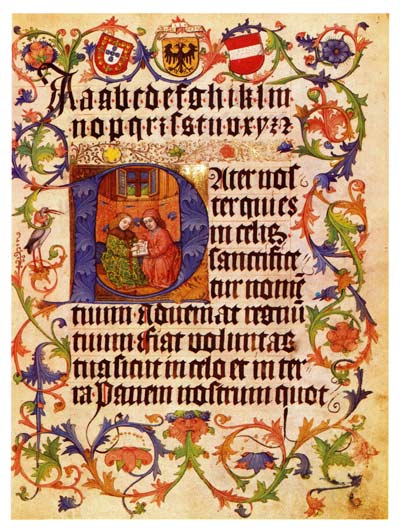 A a b c d e f g h i k l m
n o p q r ſ s t u v x y z
Pater nos
ter qui es
in celis
sanctifice
tur nomē
tuum Adveniat regnū
tuum Fiat voluntas
tua sicut in celo et in ter
ra Panem nostrum quot